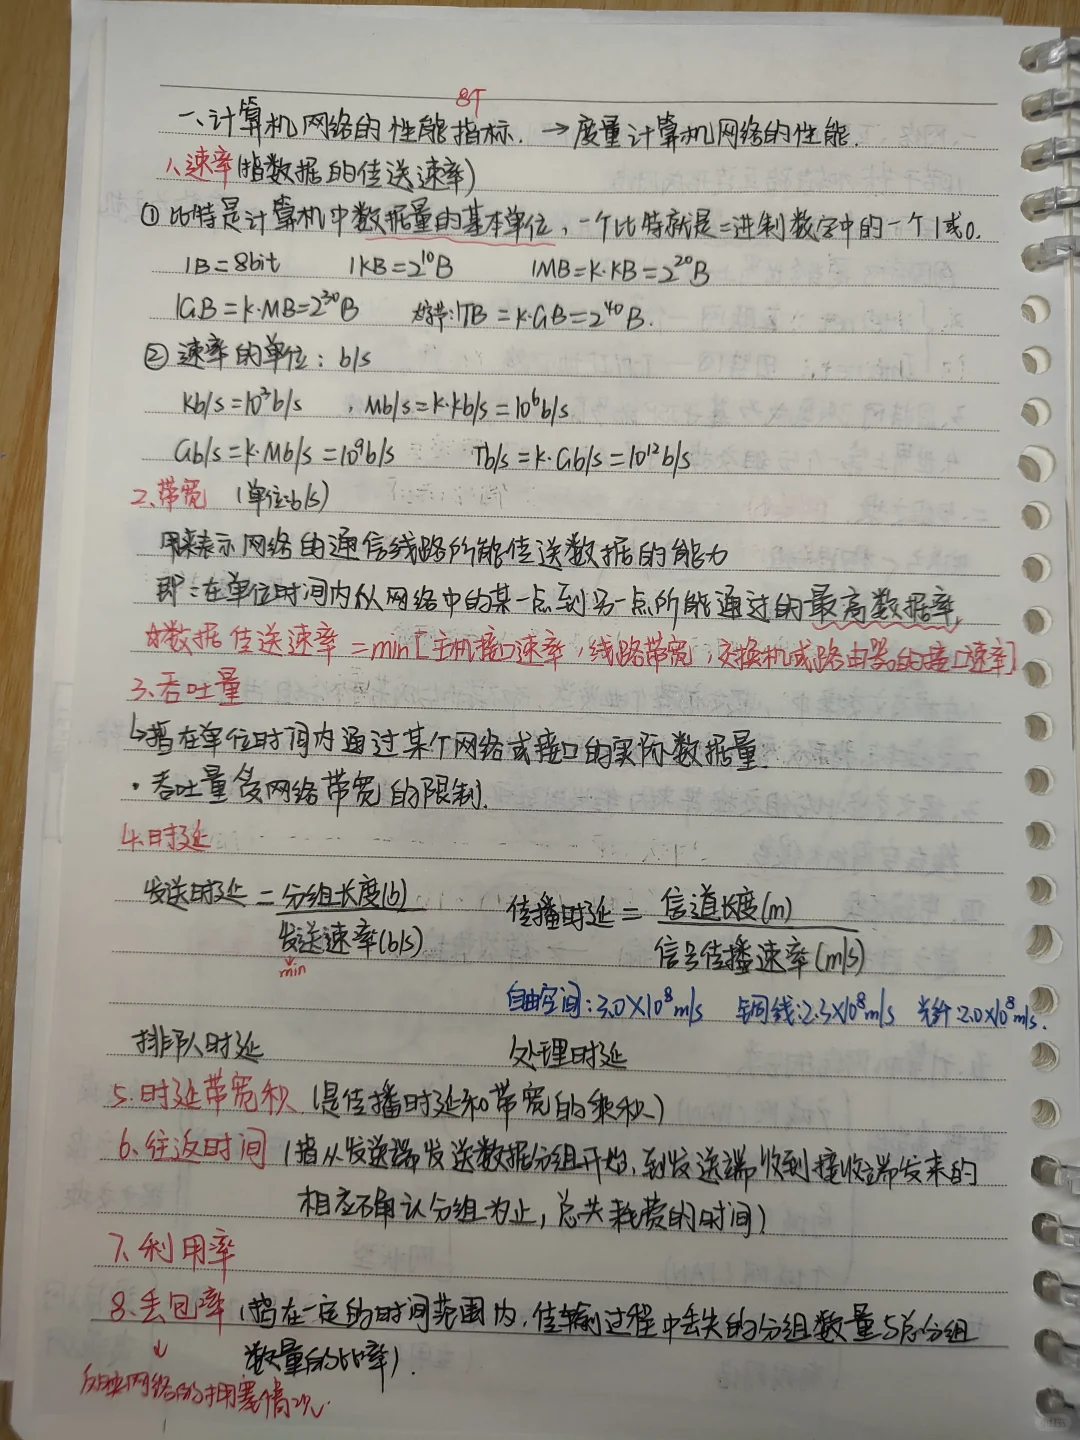 8个
一、计算机网络的性能指标. → 度量计算机网络的性能.
1、速率(指数据的传送速率)
① 比特是计算机中数据量的基本单位，一个比特就是二进制数字中的一个1或0.
1B=8bit 1KB=2^10B 1MB=K·KB=2^20B
1GB=K·MB=2^30B 1TB=K·GB=2^40B.
② 速率的单位：b/s
Kb/s=10^3b/s , Mb/s=K·Kb/s=10^6b/s
Gb/s=K·Mb/s=10^9b/s Tb/s=K·Gb/s=10^12b/s
2、带宽 (单位:b/s)
用来表示网络的通信线路所能传送数据的能力
即：在单位时间内从网络中的某一点到另一点所能通过的最高数据率,
☆数据传送速率=min[主机接口速率，线路带宽，交换机或路由器的接口速率]
3、吞吐量
↳指在单位时间内通过某个网络或接口的实际数据量.
·吞吐量受网络带宽的限制.
4.时延
发送时延=分组长度(b)/发送速率(b/s) 传播时延=信道长度(m)/信号传播速率(m/s)
min
自由空间:3.0×10^8m/s 铜线:2.3×10^8m/s 光纤:2.0×10^8m/s.
排队时延 处理时延
5.时延带宽积 (是传播时延和带宽的乘积)
6、往返时间 (指从发送端发送数据分组开始，到发送端收到接收端发来的
相应确认分组为止，总共耗费的时间)
7、利用率
8、丢包率 (指在一定的时间范围内，传输过程中丢失的分组数量与总分组
数量的比率).
↓
反映网络的拥塞情况.